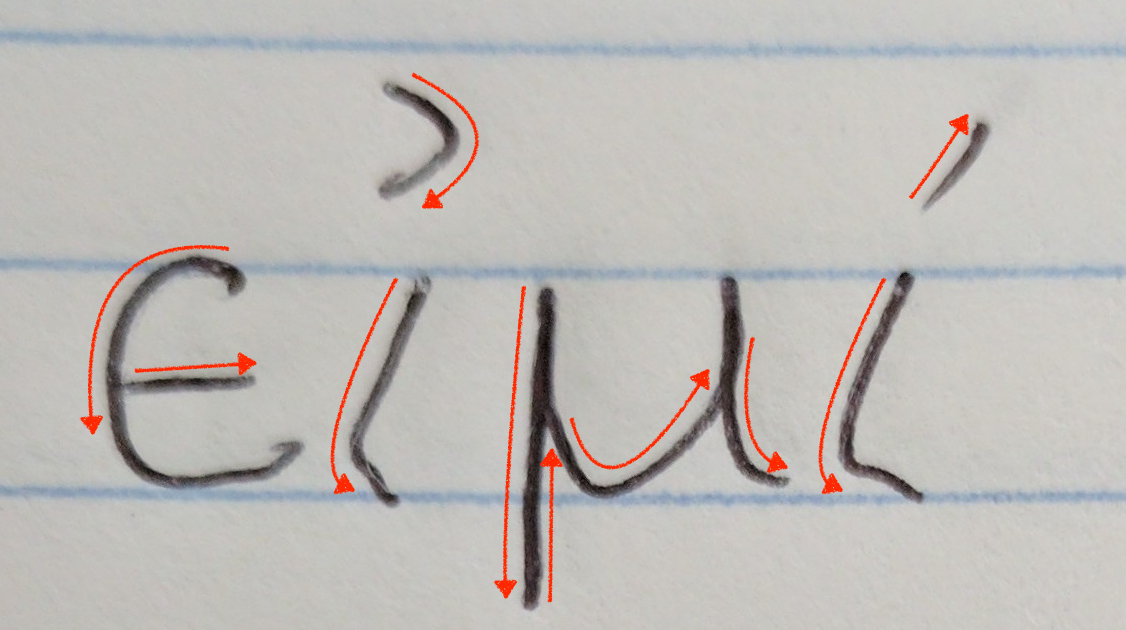 εἰμί